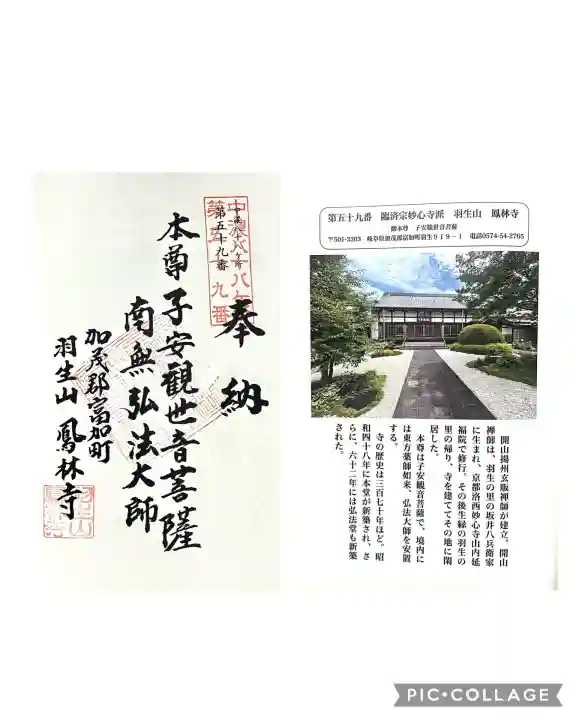 奉納
中濃八十八ヶ所
第五十九番
本尊子安觀世音菩薩
南無弘法大師
加茂郡富加町
羽生山 鳳林寺
第五十九番 臨済宗妙心寺派 羽生山 鳳林寺
御本尊 子安観世音菩薩
〒501-3303 岐阜県加茂郡富加町羽生919-1 電話0574-54-2765
開山揚州玄販禅師が建立。開山
禅師は、羽生の里の坂井八兵衛家
に生まれ、京都洛西妙心寺山内延
福院で修行。その後生縁の羽生の
里の帰り、寺を建ててその地に閑
居した。
本尊は子安観音菩薩で、境内に
は東方薬師如来、弘法大師を安置
する。
寺の歴史は三百七十年ほど。昭
和四十八年に本堂が新築され、さ
らに、六十二年には弘法堂も新築
された。
PIC•COLLAGE